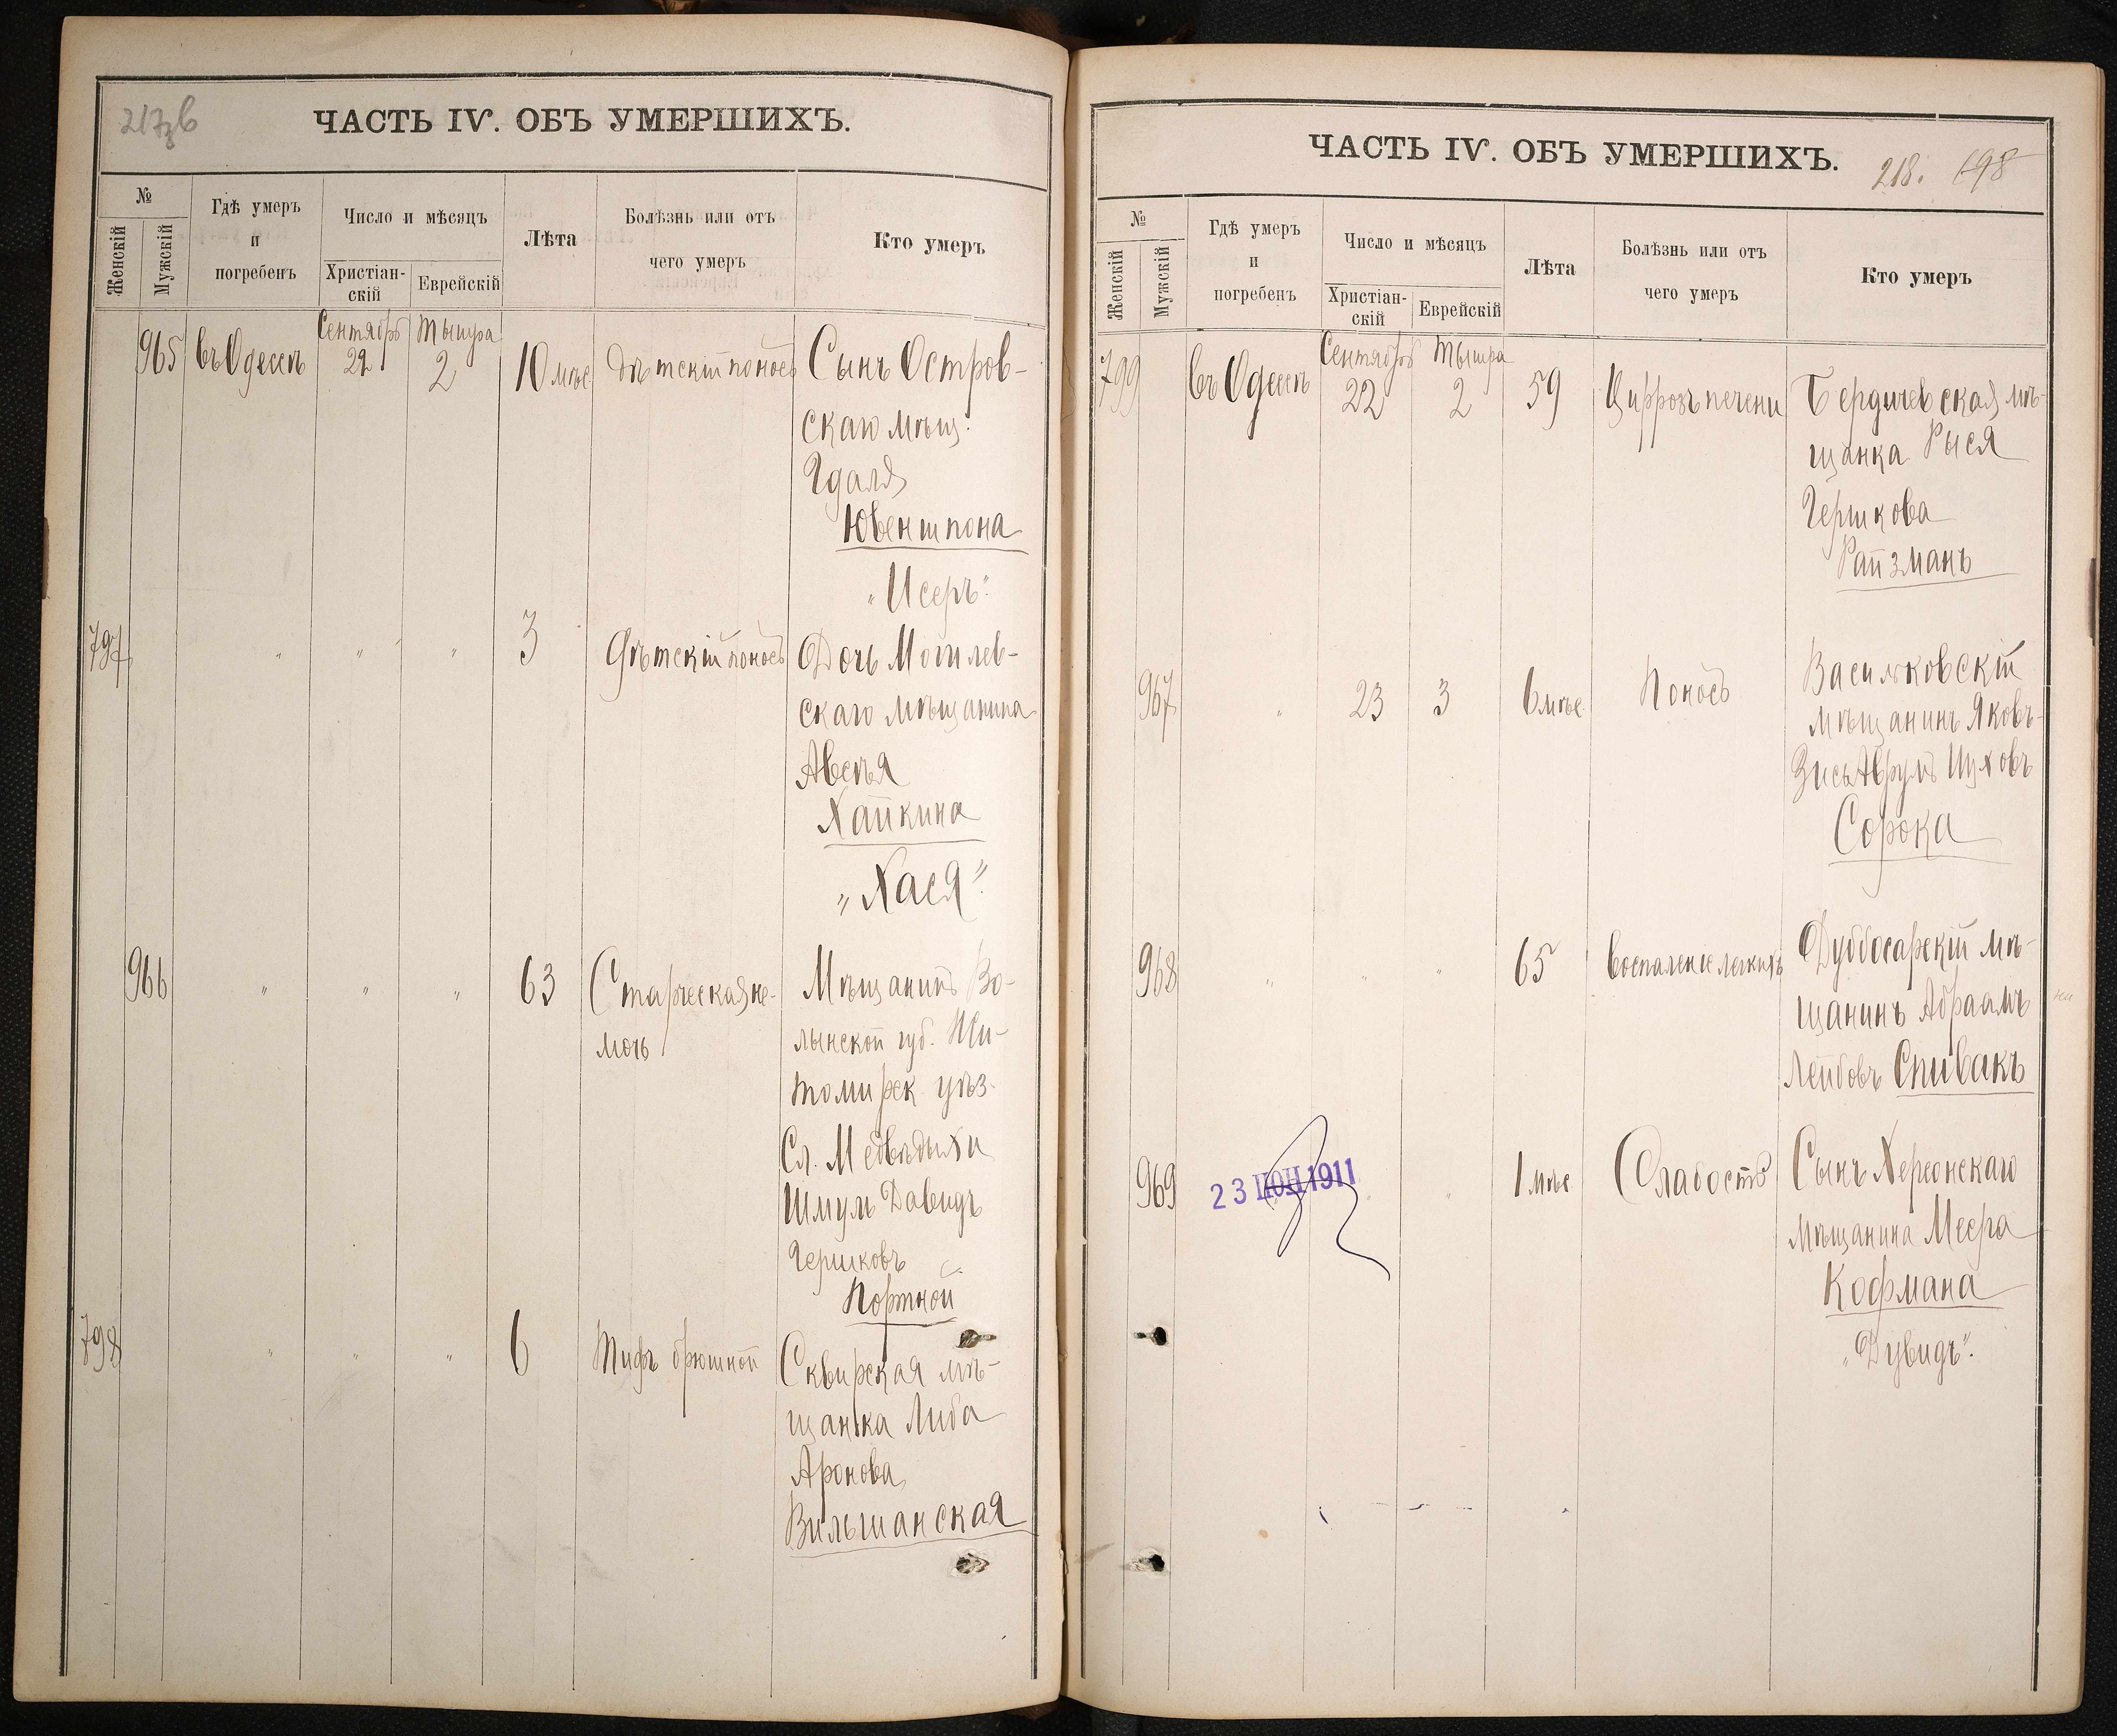 217зв
ЧАСТЬ IV. ОБЪ УМЕРШИХЪ.
№
Женскій
Мужскій
Гдѣ умеръ
и
погребенъ
Число и мѣсяцъ
Христіан-
скій
Еврейскій
Лѣта
Болѣзнь или отъ
чего умеръ
Кто умеръ
965 въ Одессѣ Сентябрь 22 Тышра 2 10 мѣс. Дѣтскій поносъ Сынъ Остров-
скаго мѣщ.
Гдаля
Ювеншпона
„Исеръ“
797 " " " 3 Дѣтскій поносъ Дочь Могилев-
скаго мѣщанина
Авсѣя
Хайкина
„Хася“
966 " " " 63 Старческая не- Мѣщанинъ Во-
мочь лынской губ. Жи-
томирск. уѣз.
Сл. Медвѣдыхи
Шмуль Давидъ
Гершковъ
Портной
798 " " " 6 Тифъ брюшной Сквирская мѣ-
щанка Либа
Аронова
Вильшанская
ЧАСТЬ IV. ОБЪ УМЕРШИХЪ.
218. 698
№
Женскій
Мужскій
Гдѣ умеръ
и
погребенъ
Число и мѣсяцъ
Христіан-
скій
Еврейскій
Лѣта
Болѣзнь или отъ
чего умеръ
Кто умеръ
799 въ Одессѣ Сентябрь 22 Тышра 2 59 Циррозъ печени Бердичевская мѣ-
щанка Рыся
Гершкова
Райзманъ
967 " 23 3 6 мѣс. Поносъ Васильковскій
мѣщанинъ Яковъ-
Зись Аврумъ Ицковъ
Сорока
968 " " " 65 Воспаленіе легкихъ Дуббосарскій мѣ-
щанинъ Абраамъ
Лейбовъ Спивакъ
969 23 ІЮН 1911 " 1 мѣс Слабость Сынъ Херсонскаго
мѣщанина Меера
Кофмана
„Дувидъ“.